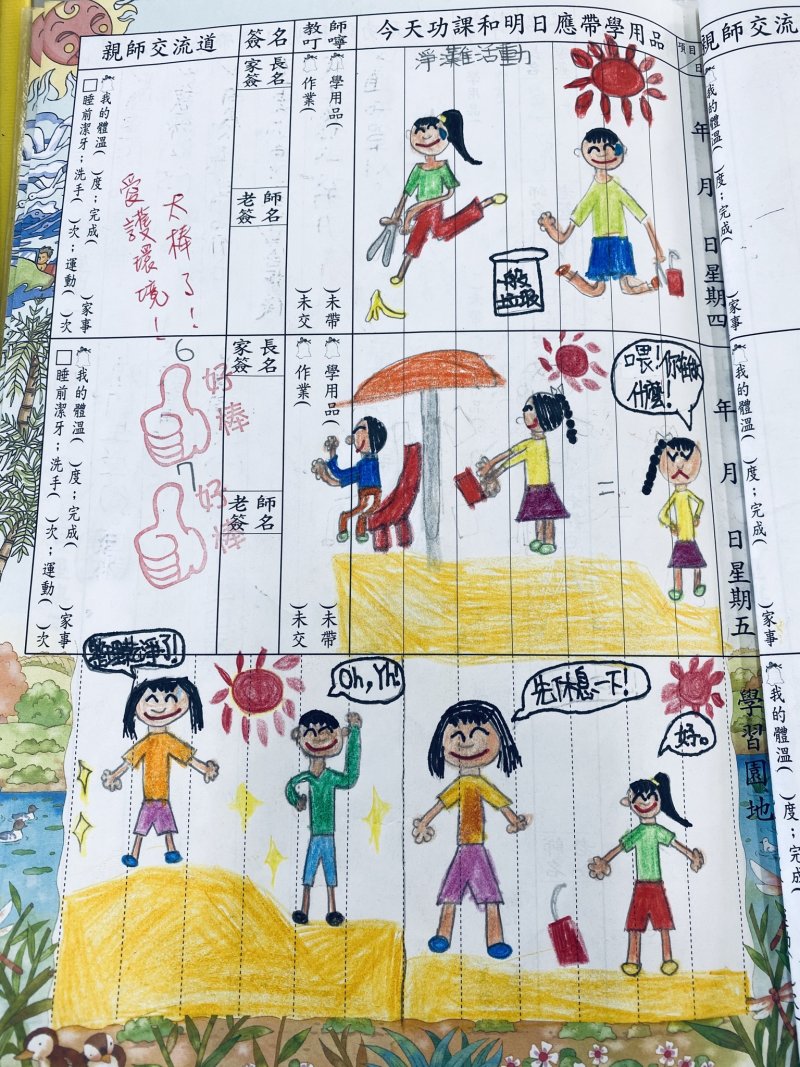 今天功課和明日應帶學用品
師嚀
教叮
簽名
親師交流道
親師交流
項目
日
年
月
日
星期四
學用品(
)未帶
作業(
)未交
家長
簽名
老師
簽名
我的體溫(
)度;完成(
)家事
睡前潔牙;洗手(
)次;運動(
)次
淨灘活動
一般
垃圾
太棒了!
愛護環境!
年
月
日
星期五
學用品(
)未帶
作業(
)未交
家長
簽名
老師
簽名
我的體溫(
)度;完成(
)家事
睡前潔牙;洗手(
)次;運動(
)次
喂!你在做
什麼!
6
好棒
7
好棒
二
學習園地
先休息一下!
好。
Oh, Yh!
乾淨了!
我的體溫(
)度;完成(
家事
我的體溫(
)度;完成(
家事
我的體溫(
)度;完成(